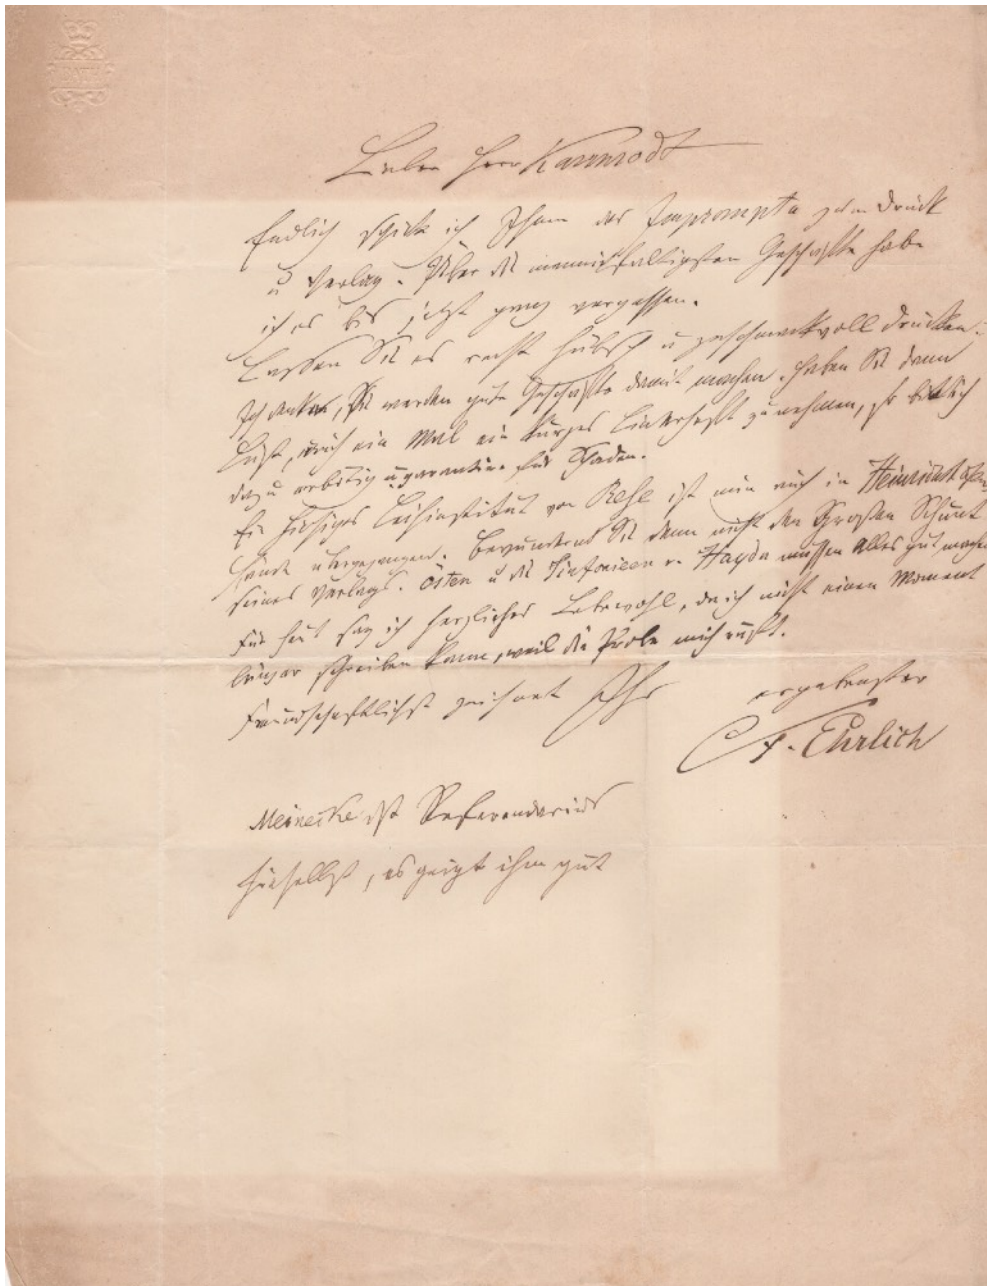 BATH
Lieber Herr Karmrodt
Endlich schicke ich Ihnen das Impromptu zum Druck
u Verlag. Über die mannichfaltigsten Geschäfte habe
ich es bis jetzt ganz vergessen.
Lassen Sie es recht hübsch u geschmackvoll drucken.
Ich denke, Sie werden gute Geschäfte damit machen. Haben Sie dann
Lust, auch ein Mal ein kurzes Liederheft zu nehmen, so bin ich
dazu erbötig u garantire für Schaden.
Ein hiesiges Leihinstitut von ist nun auch in Heinrichshofen
Hände übergegangen. Bewundern Sie denn nicht den Großen Schund
seines Verlags. Osten u die Sinfonieen v. Haydn müssen alles gut machen
Für heut sag ich herzliches Lebewohl, da ich nicht einen Moment
länger schreiben kann, weil die Probe mich ruft.
Freundschaftlichst zeichnet Ihr ergebenster
C. F. Ehrlich
Meinecke ist Referendarius
hieselbst, es geht ihm gut